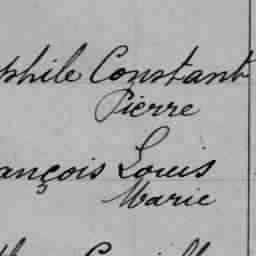 phile Constant
Pierre
ançois Louis
Marie